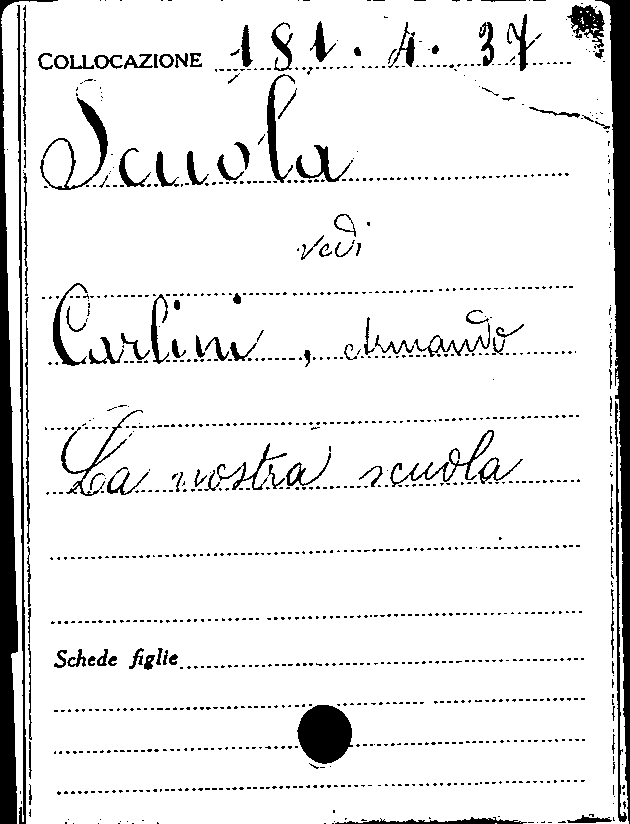 COLLOCAZIONE 181.4.37
Scuola
vedi
Carlini, Armando
La nostra scuola
Schede figlie